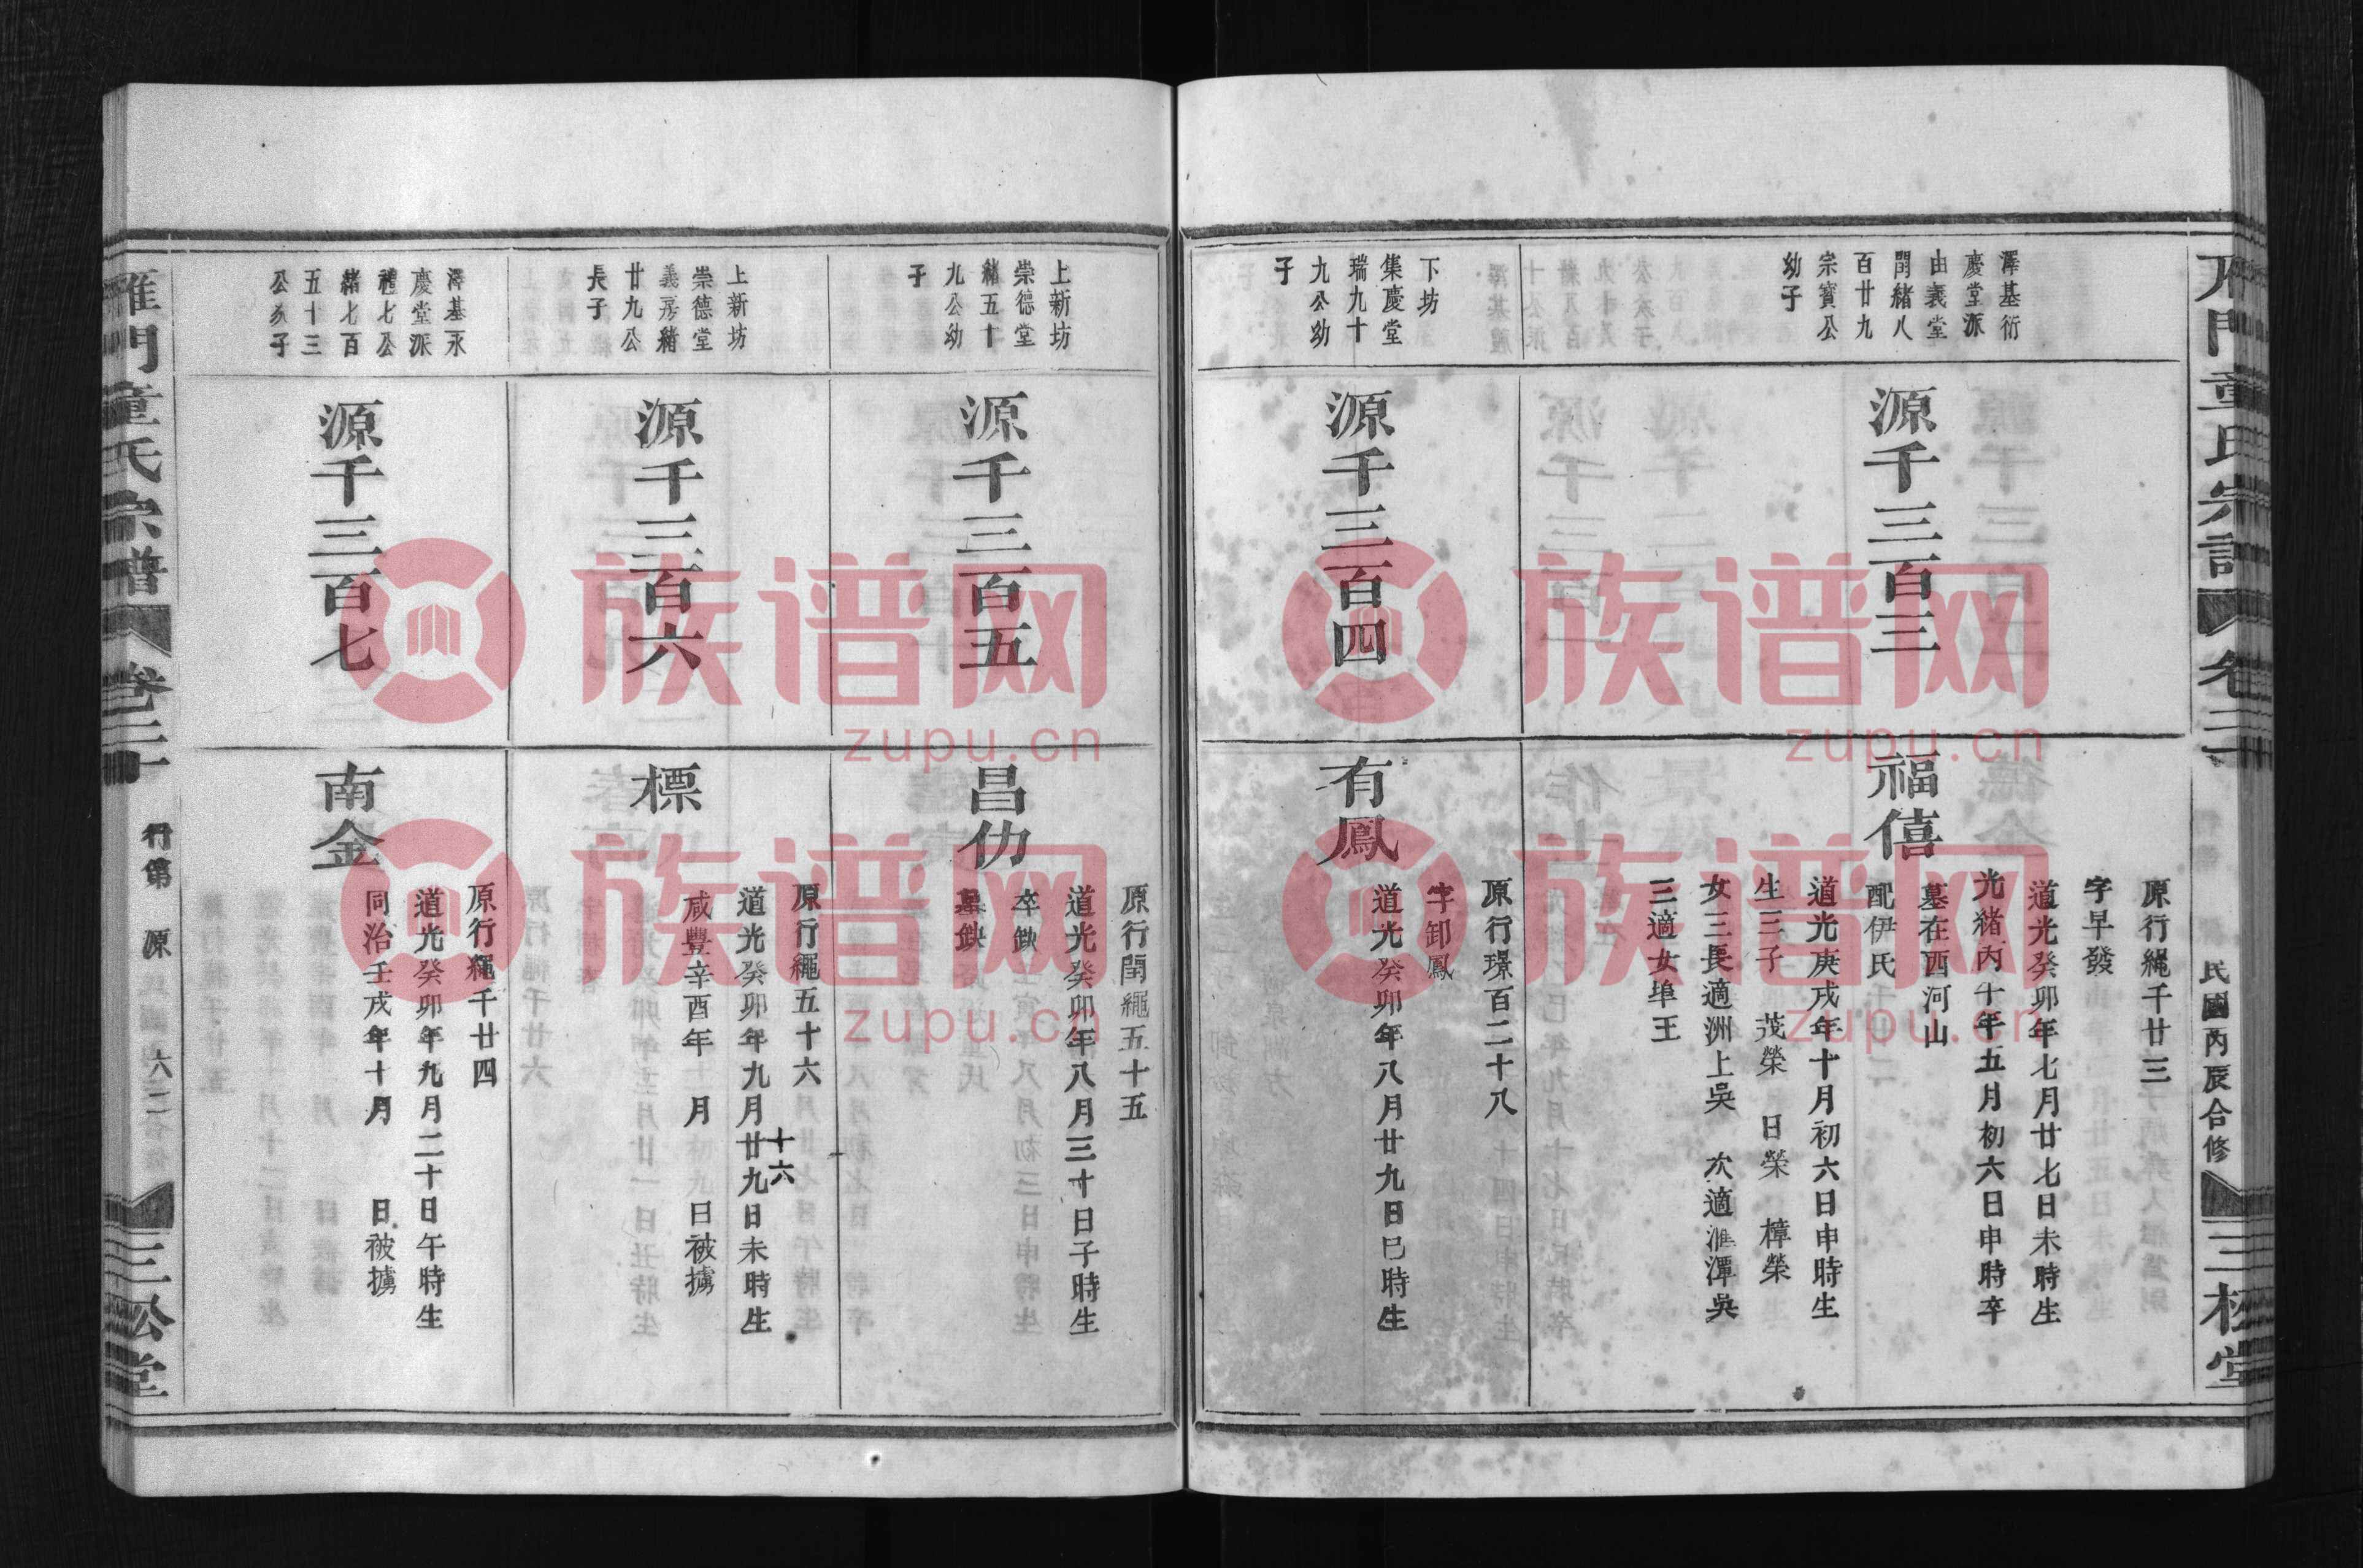 民國丙辰合修
澤基衍
慶堂派
由義堂
閏緒八
百廿九
宗寶公
幼子
源千三百三
福僖
原行繩千廿三
字早發
道光癸卯年七月廿七日未時生
光緒丙午年五月初六日申時卒
墓在西河山
配伊氏
道光庚戌年十月初六日申時生
生三子 茂榮 日榮 樟榮
女三長適洲上吳 次適潭吳
三適女埠王
下坊
集慶堂
瑞九十
九公幼
子
源千三百四
有鳳
原行璟百二十八
字卸鳳
道光癸卯年八月廿九日巳時生
上新坊
崇德堂
緒五十
九公幼
子
源千三百五
昌仂
原行閏繩五十五
道光癸卯年八月三十日子時生
卒缺
墓缺
上新坊
崇德堂
義房緒
廿九公
長子
源千三百六
標
原行繩五十六
道光癸卯年九月廿九日未時生
十六
咸豐辛酉年 月 日被擄
澤基永
慶堂派
禮七公
緒七百
五十三
公次子
源千三百七
南金
原行繩千廿四
道光癸卯年九月二十日午時生
同治壬戌年十月 日被擄
雁門童氏宗譜 卷二十 行第 源 六二 三松堂
族谱网
zupu.cn
族谱网
zupu.cn
族谱网
zupu.cn
族谱网
zupu.cn